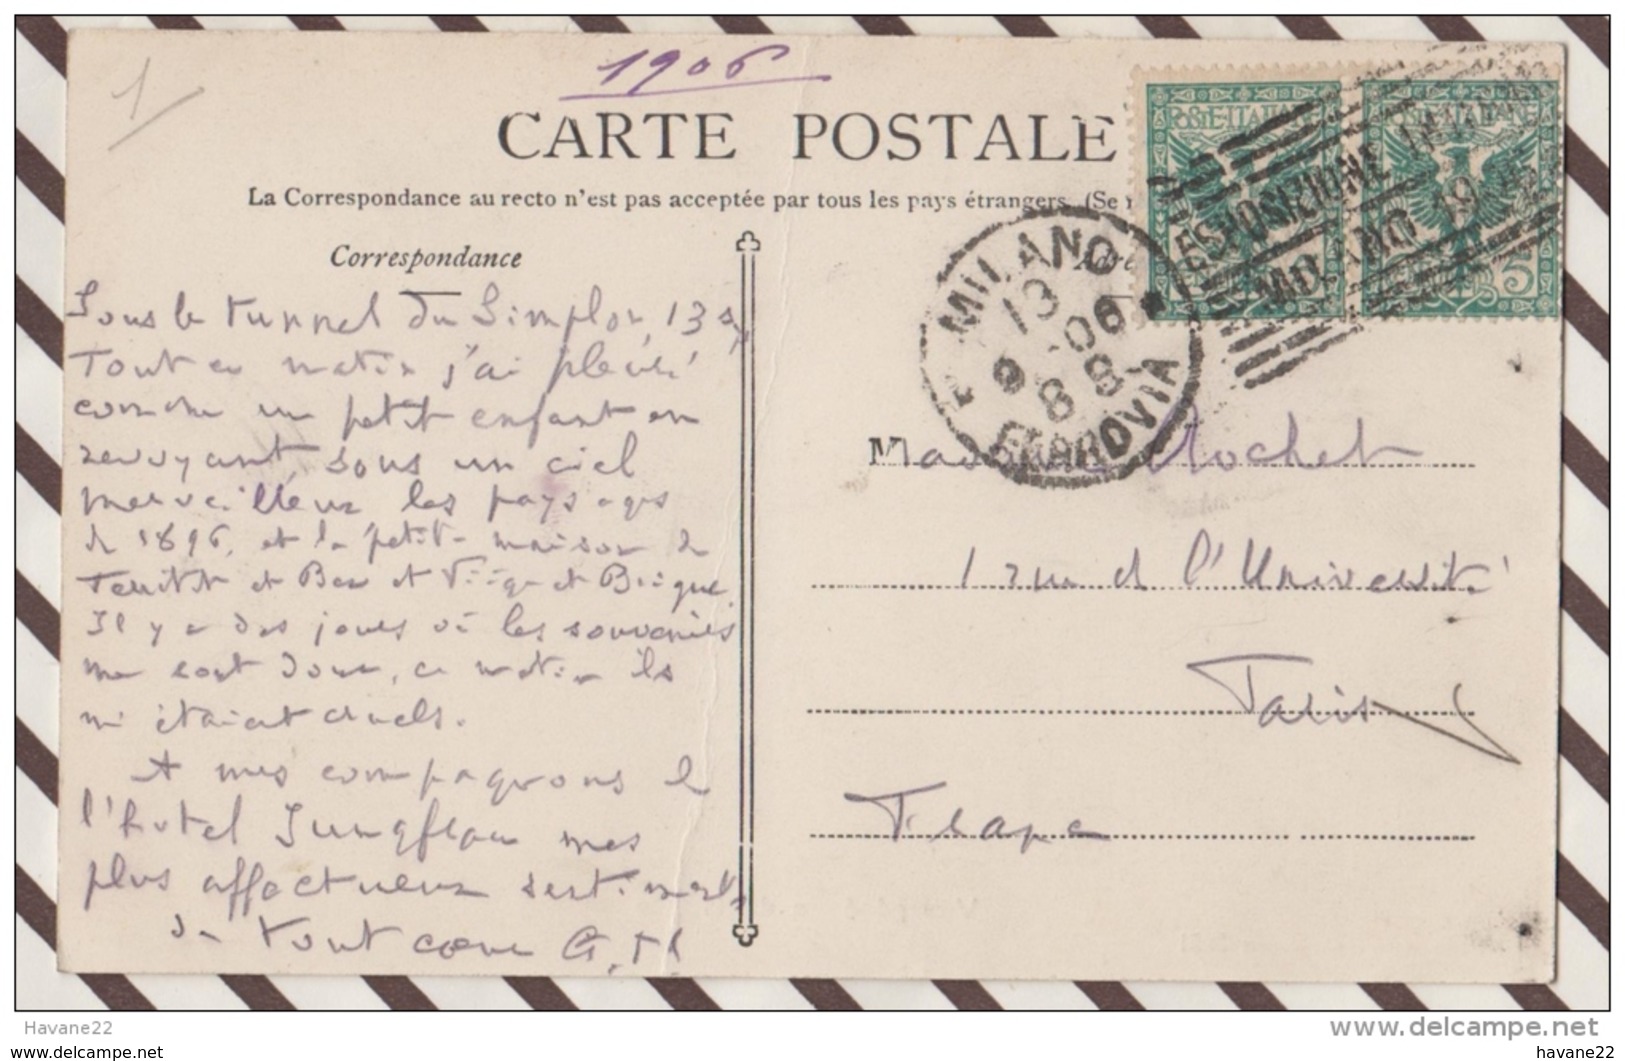 1
1906
CARTE POSTALE
La Correspondance au recto n'est pas acceptée par tous les pays étrangers. (Se
Correspondance
Adre
POSTE ITALIANE
POSTE ITALIANE
5
ESPOSIZIONE
MILANO 19
MILANO
13
9 06
8 8
FERROVIA
Sous le tunnel du Simplon, 13
Tout ce matin j'ai pleuré
comme un petit enfant en
revoyant, sous un ciel
merveilleux les paysages
de 1896, et la petite maison de
et Bex et Viège et Brigue.
Il y a des jours où les souvenirs
me sont doux, ce matin ils
m'étaient cruels.
A mes compagnons de
l'hotel Jungfrau mes
plus affectueux sentiments
de tout coeur G.
Mad Rochet
1 rue de l'Université
Paris
France
Havane22
www.delcampe.net
havane22